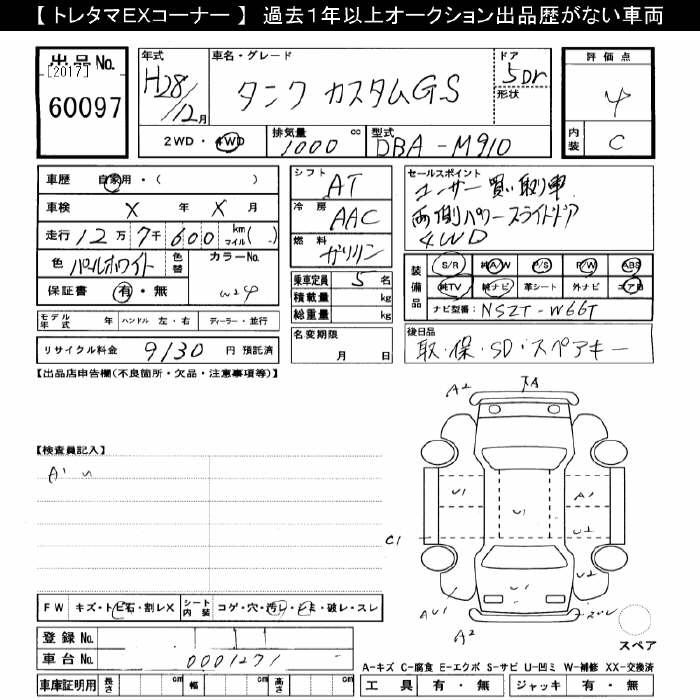 【 トレタマEXコーナー 】 過去１年以上オークション出品歴がない車両
出品No. [2017] 60097
年式 H28/12月
車名・グレード タンク カスタムGS
ドア 5Dr
形状
評価点 4
内装 C
2WD・4WD
排気量 1000 cc
型式 DBA-M910
車歴 自家用・( )
車検 X 年 X 月
走行 12万7千600 km マイル( )
色 パールホワイト 色替 カラーNo. W24
保証書 有・無
モデル年式 年 ハンドル 左・右 ディーラー・並行
リサイクル料金 9130 円 預託済
シフト AT
冷房 AAC
燃料 ガソリン
乗車定員 5名
積載量 kg
総重量 kg
名変期限 月 日
セールスポイント
ユーザー買い取り車
両側パワースライドドア
4WD
装備品 S/R 純A/W P/S P/W ABS
純TV 純ナビ 革シート 外ナビ エアB
ナビ型番: NSZT-W66T
後日品
取・保・SD・スペアキー
【出品店申告欄(不良箇所・欠品・注意事項等)】
【検査員記入】
FW キズ・トビ石・割レX シート内装 コゲ・穴・汚レ・シミ・破レ・スレ
登録No.
車台No. 0001271
車庫証明用 長さ cm 幅 cm 高さ cm
A2
C1
U1
U1
A1
U2
U1
AU1
A2
スペア
A-キズ C-腐食 E-エクボ S-サビ U-凹ミ W-補修 XX-交換済
工具 有・無 ジャッキ 有・無